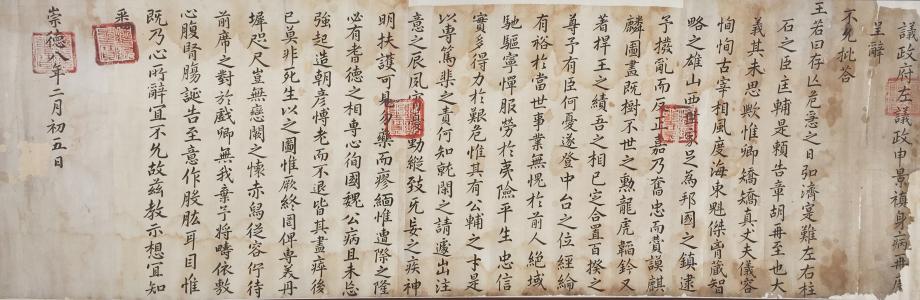 議政府左議政申景禛身病再度
呈辭
不允批答
王若曰存亡危急之日弘濟寔難左右柱
石之臣匡輔是賴告章胡再至也大
義其未思歟惟卿矯矯真丈夫儀容
恂恂古宰相風度海東魁傑胷藏智
略之雄山西世家名爲邦國之鎮逮
予撥亂而反正嘉乃奮忠而贊謨麒
麟圖畫既樹不世之勲龍虎韜鈐又
著捍王之績吾之相已定合置百揆之
尊予有臣何憂遂登中台之位經綸
有裕於當世事業無愧於前人絶域
馳驅寧憚服勞於夷險平生忠信
實多得力於艱危惟其有公輔之才是
以專篤棐之責何知之請遽出注
意之辰夙勤縱致旡妄之疾神
明扶護可見勿藥而瘳緬惟遭際之隆
必有耆德之相專心徇國魏公病且未忘
強起造朝彦博老而不退皆其盡瘁後
已莫非死生以之圖惟厥終罔俾專美丹
墀咫尺豈無戀闕之懷赤舄從容佇待
前席之對於戲卿無我棄予將疇依敷
心腹腎膓誕告至意作股肱耳目惟
既乃心所辭宜不允故玆教示想宜知
悉
崇德八年二月初五日